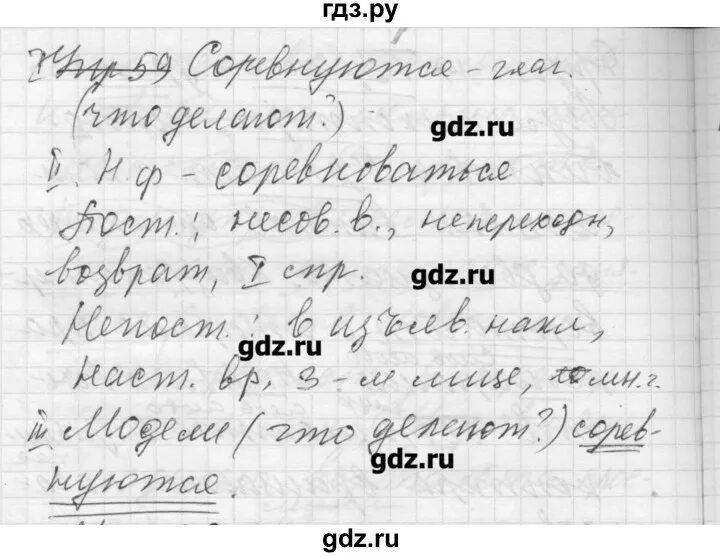 гдз.ру
I Упр 59 Соревнуются - глаг.
(что делают?)
gdz.ru
II. Н. ф - соревноваться
Пост.: несов. в., непереходн,
возврат, I спр.
gdz.ru
Непост.: в изъяв. накл,
gdz.ru
наст. вр, 3-м лице, мн. ч.
III Модели (что делают?) сорев-
gdz.ru
нуются.
gdz.ru